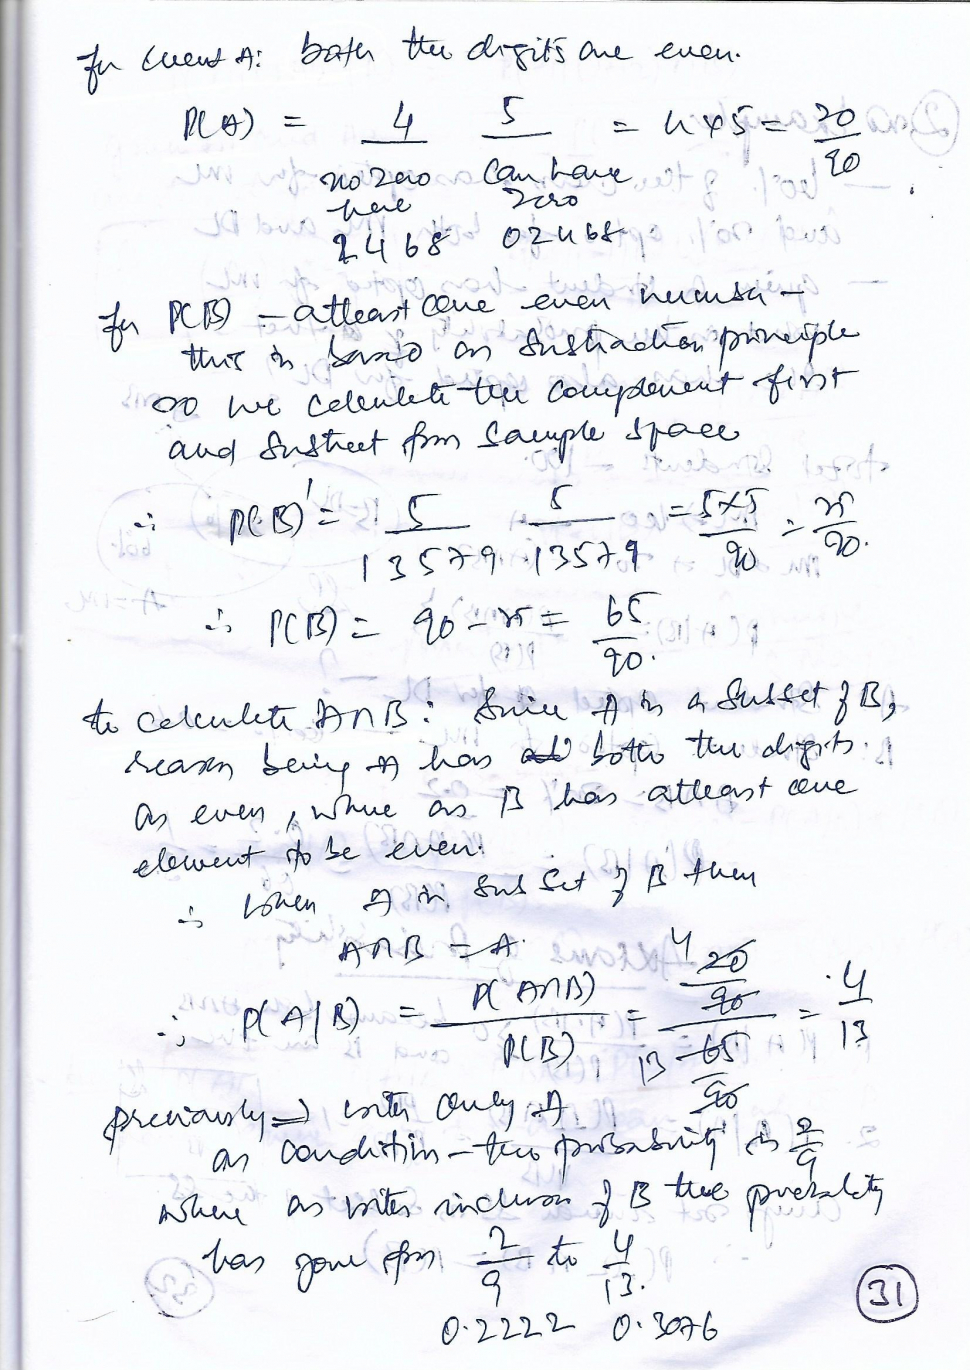 for event A: both the digits are even.
P(A) = 4 5 = 4x5 = 20/90
no zero can have
here zero
2468 02468
for P(B) - atleast one even number -
this is based on substraction principle
so we calculate the complement first
and substract from sample space
∴ P(B)' = 5 5 = 5x5/90 = 25/90.
13579. 13579
∴ P(B) = 90 - 25 = 65/90.
to calculate A∩B: Since A is a subset of B,
reason being A has both the digits
as even, where as B has atleast one
element to be even.
∴ when A is subset of B then
A∩B = A.
∴ P(A|B) = P(A∩B)/P(B) = 4 20/90 / 13 65/90 = 4/13
previously ⇒ with only A
as condition - the probability is 2/9
where as with inclusion of B the probability
has gone from 2/9 to 4/13.
0.2222 0.3076
31